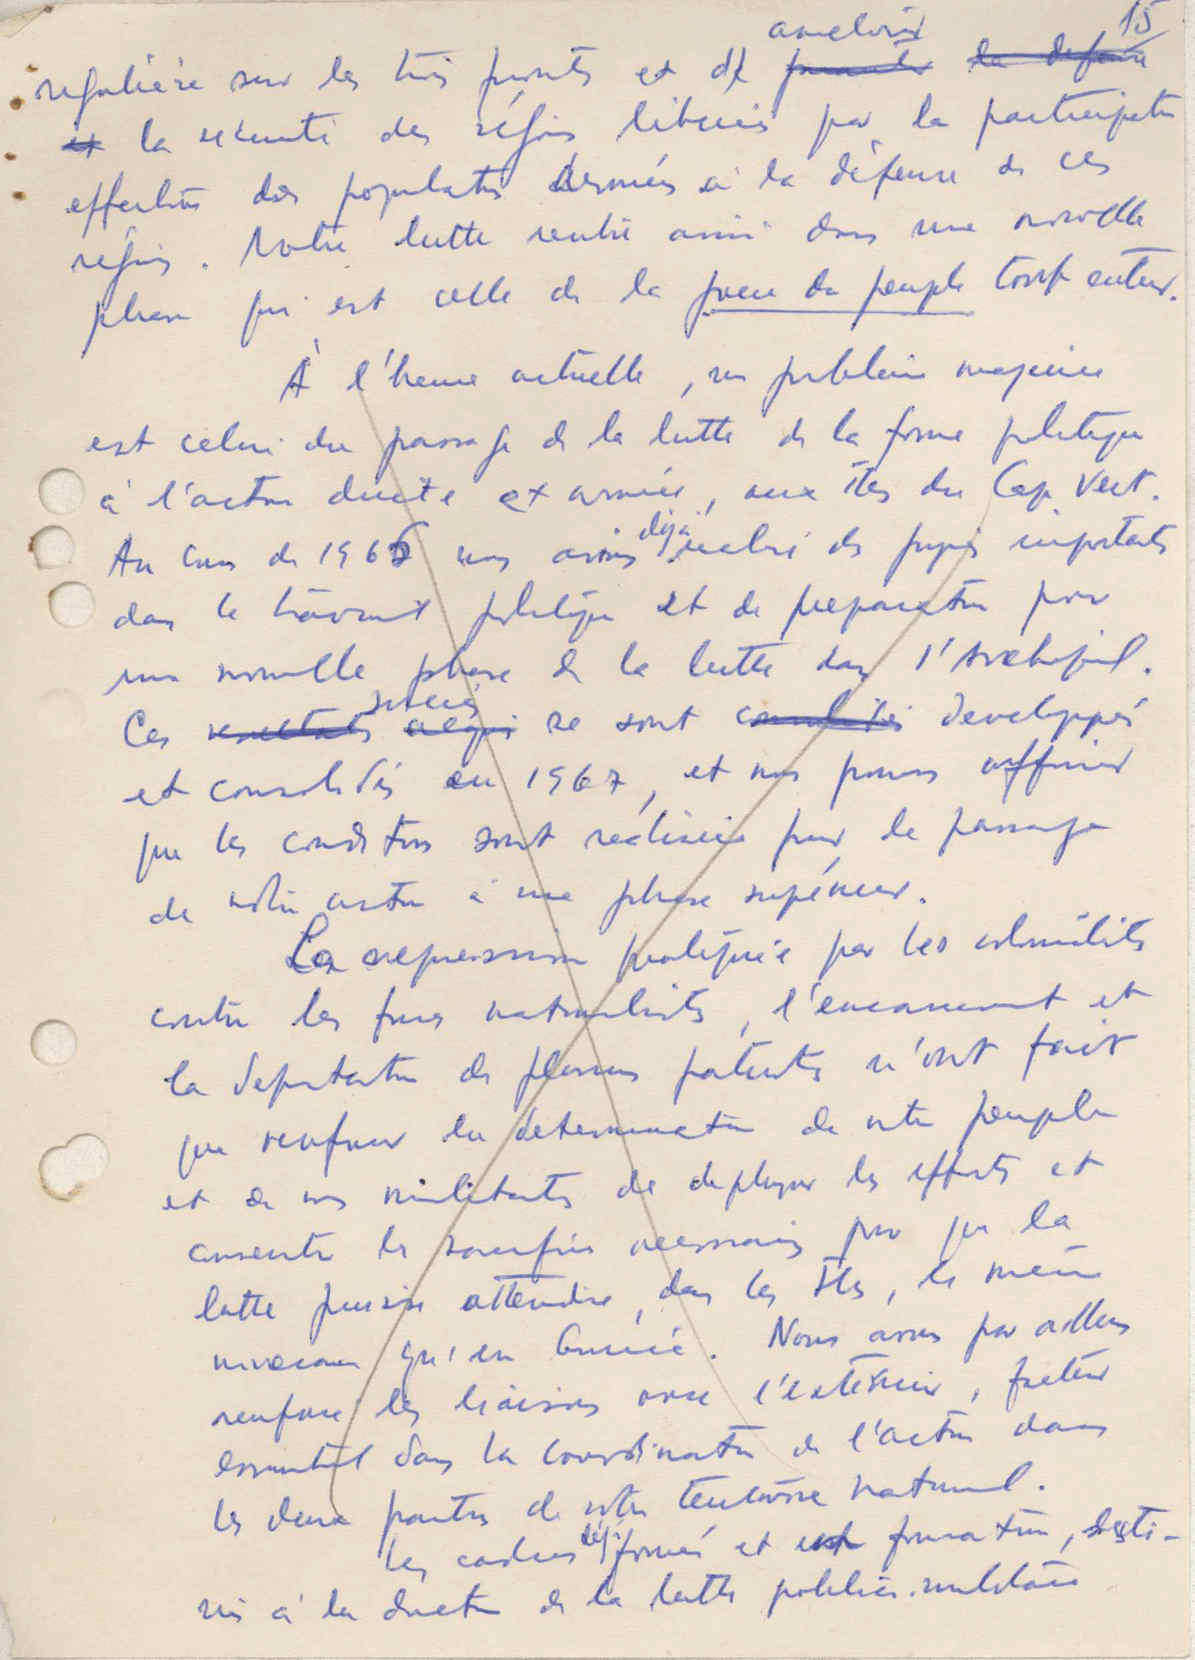 15
régulière sur les trois fronts et d' améliorer
la sécurité des régions libérées par la participation
effective des populations armées à la défense de ces
régions. Notre lutte rentre ainsi dans une nouvelle
phase qui est celle de la guerre du peuple tout entier.
À l'heure actuelle, un problème majeur
est celui du passage de la lutte de la forme politique
à l'action directe et armée, aux îles du Cap Vert.
Au cours de 1966 nous avions déjà réalisé des progrès importants
dans le travail politique et de préparation pour
une nouvelle phase de la lutte dans l'Archipel.
Ces succès se sont développés
et consolidés en 1967, et nous pouvons affirmer
que les conditions sont réalisées pour le passage
de notre action à une phase supérieure.
La répression pratiquée par les colonialistes
contre les forces nationalistes, l'
et
la déportation de plusieurs patriotes n'ont fait
que renforcer la détermination de notre peuple
et de nos militants de déployer les efforts et
consentir les sacrifices nécessaires pour que la
lutte puisse atteindre, dans les Îles, le même
niveau qu'en Guinée. Nous avons par ailleurs
renforcé les liaisons avec l'extérieur, facteur
essentiel dans la coordination de l'action dans
les deux parties de notre territoire national.
Les cadres déjà formés et en formation, desti-
nés à la direction de la lutte politico-militaire